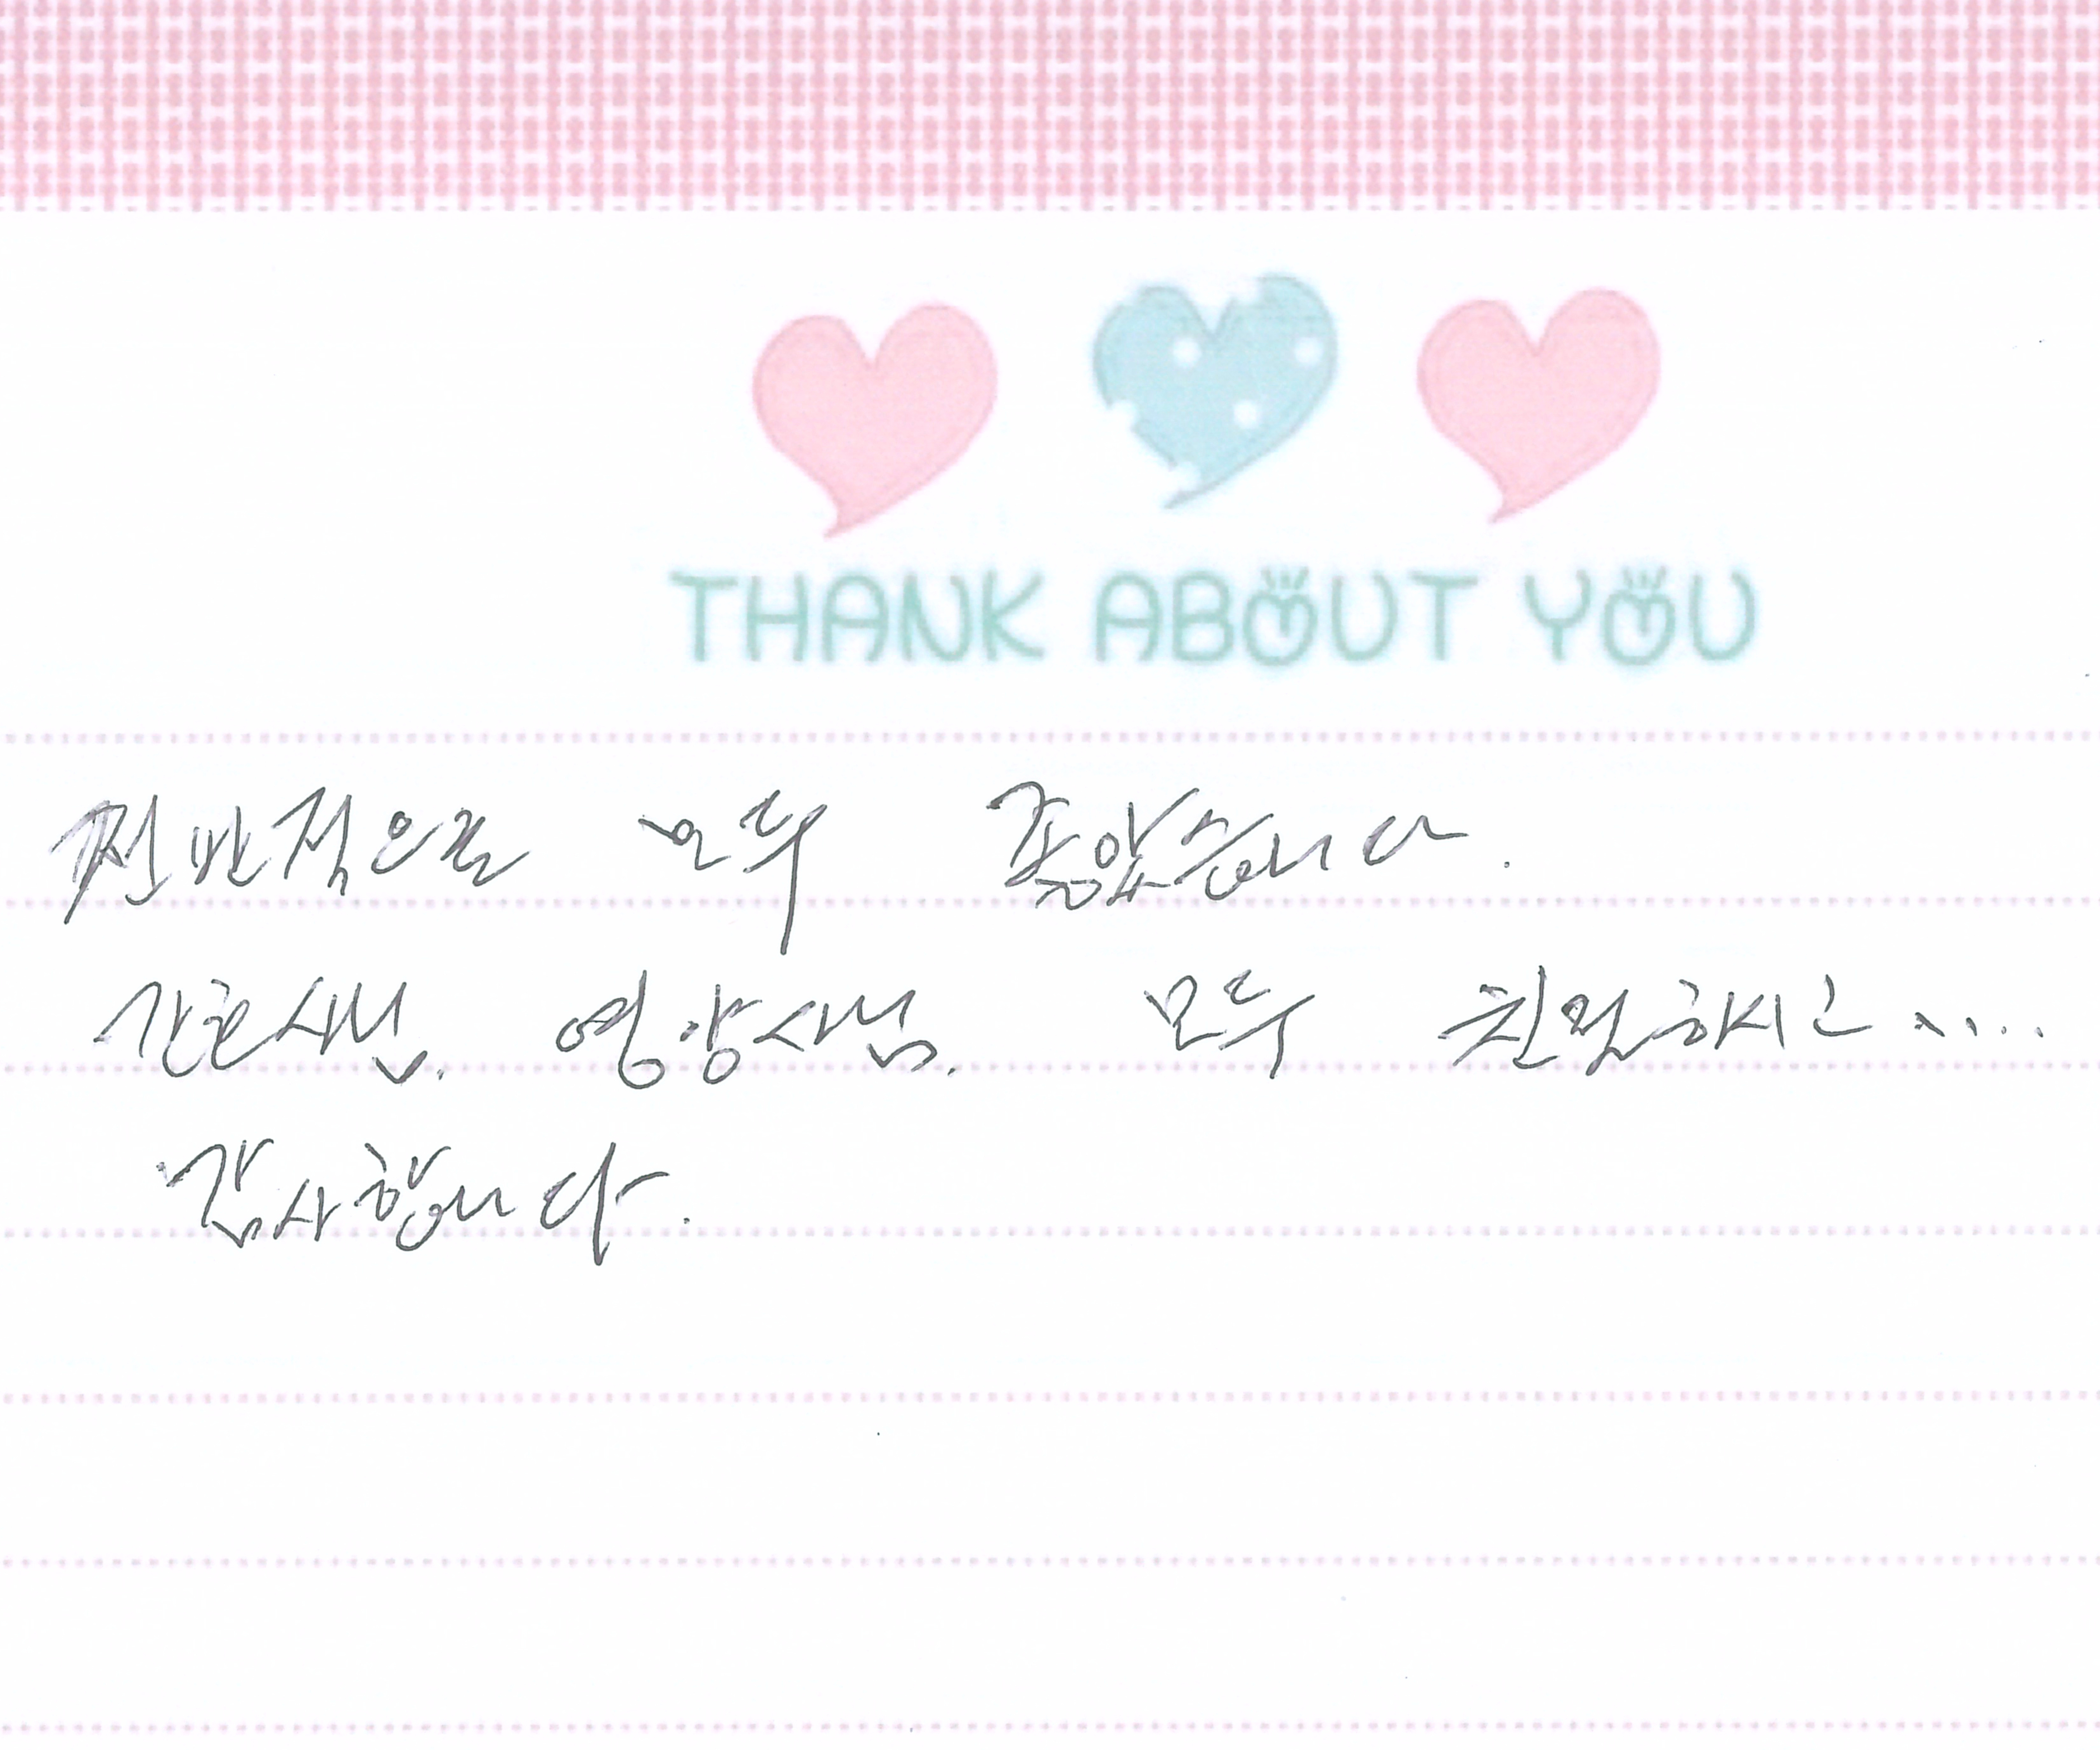 THANK ABOUT YOU
전반적으로 모두 좋았습니다.
간호사님, 영양사님, 모두 친절하시고 ....
감사합니다.